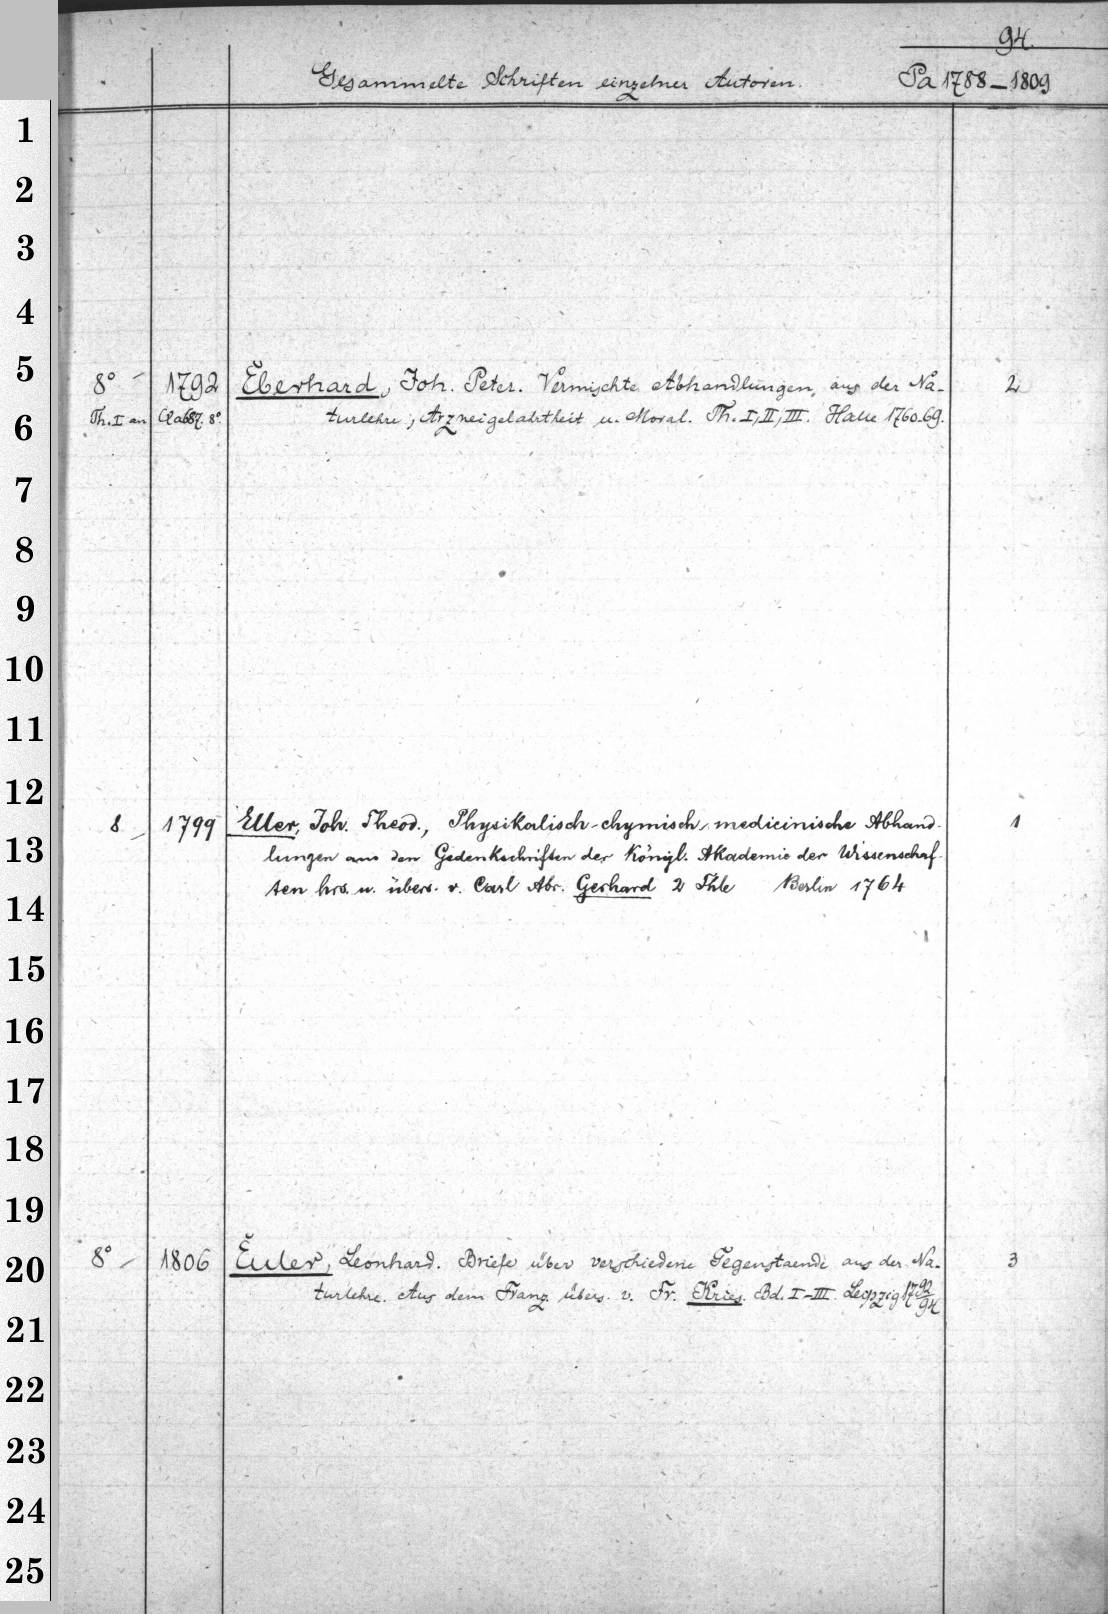 94.
Gesammelte Schriften einzelner Autoren. Pa 1788–1809
1
2
3
4
5
8° – 1792 Eberhard, Joh. Peter. Vermischte Abhandlungen, aus der Na- 2
6
Th. I an Qa 687. 8° turlehre, Arzneigelahrtheit u. Moral. Th. I, II, III. Halle 1760-69.
7
8
9
10
11
12
8 – 1799 Eller, Joh. Theod., Physikalisch-chymisch-medicinische Abhand- 1
13
lungen aus den Gedenkschriften der Königl. Akademie der Wissenschaf-
ten hrs. u. übers. v. Carl Abr. Gerhard 2 Thle Berlin 1764
14
15
16
17
18
19
8° – 1806 Euler, Leonhard. Briefe über verschiedene Gegenstaende aus der Na- 3
20
turlehre. Aus dem Franz. übers. v. Fr. Kries. Bd. I–III. Leipzig 1792/94
21
22
23
24
25